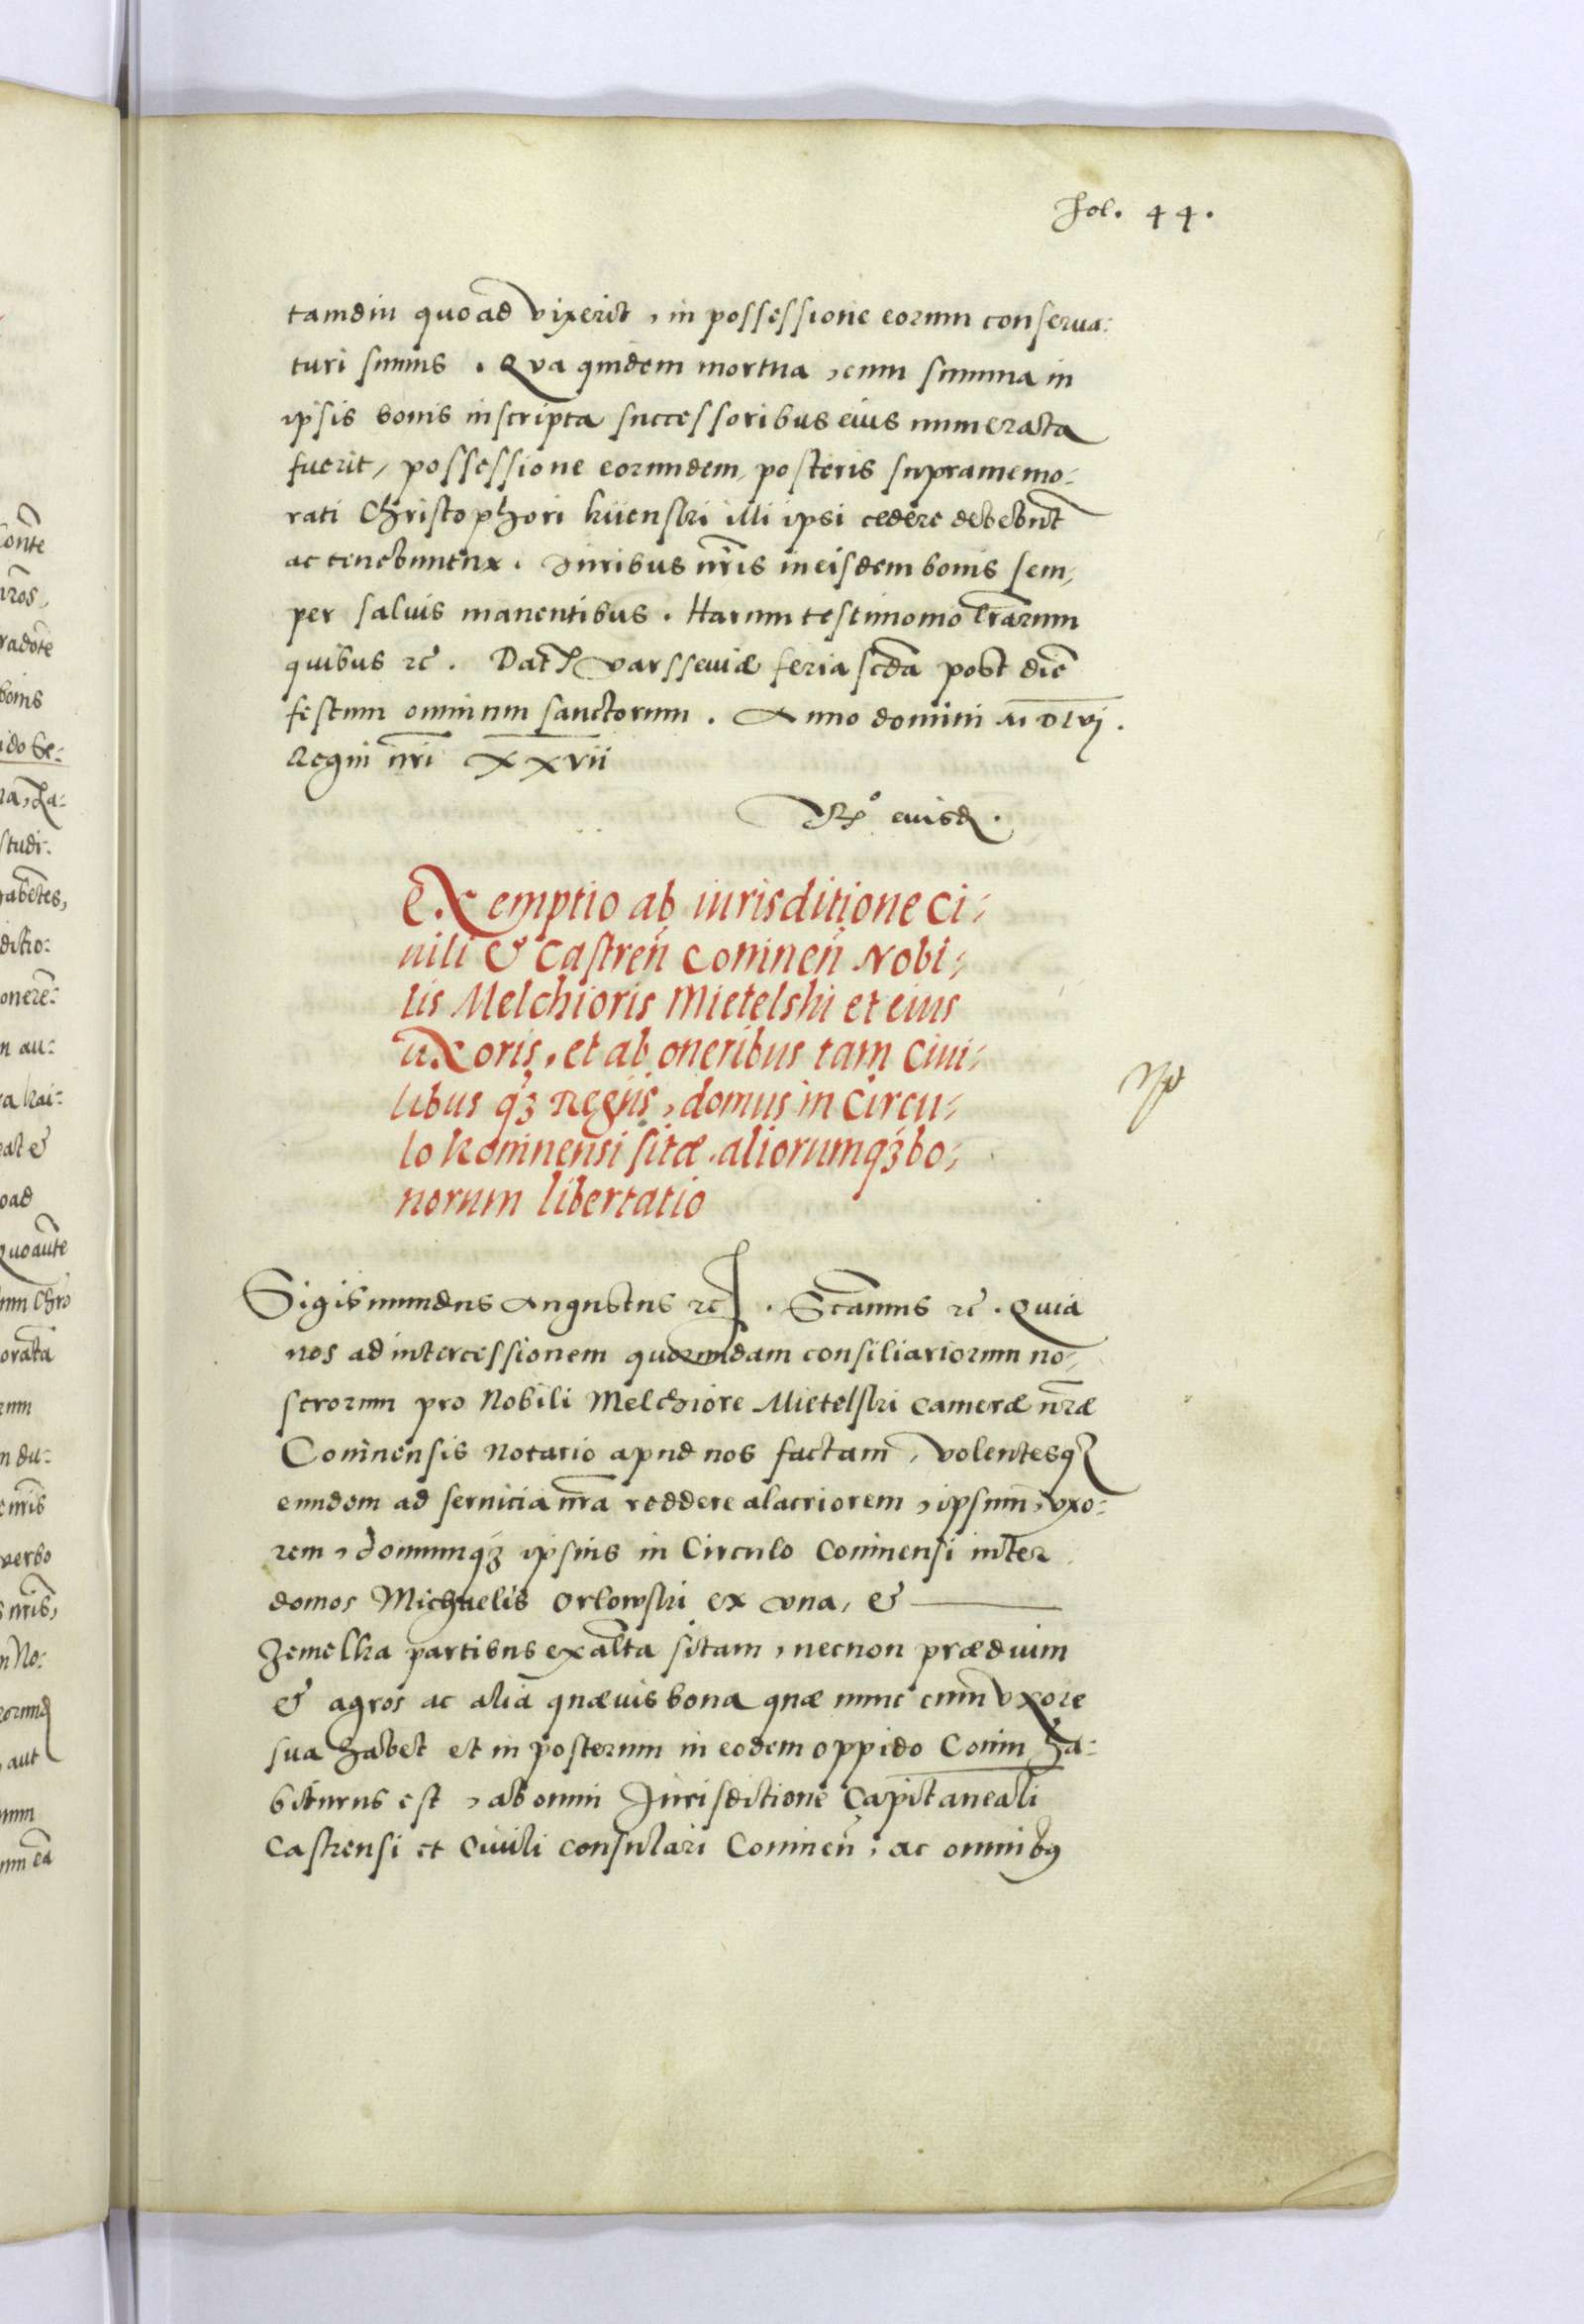 fol. 44.
tamdiu quoad vixerit, in possessione eorum conserua:
turi sumus. Qva quidem mortua, cum summa in
ipsis bonis inscripta successoribus eius numerata
fuerit, possessione eorundem, posteris supramemo:
rati Christophori illi ipsi cedere debebūt
ac tenebuntur. Iuribus nr̄is in eisdem bonis sem,
per saluis manentibus. Harum testimonio lr̄arum
quibus ⁊c̄. Dat̄ varsseuiæ feria scd̄a post diē
festum omnium sanctorum. Anno domini M D lvj.
Regni nr̄i XXvii
R͞o eiusd.
Exemptio ab iurisditione Ci;
uili & Castreń Comineń Nobi;
lis Melchioris Mietelski et eius
uxoris, et ab oneribus tam Ciui;
libus qꝫ Regijs, domus in Circu;
lo Kominensi sitæ, aliorumqꝫ bo;
norum libertatio
Sigismundus Augustus ⁊c. Sc̄amus ⁊c̄. Quia
nos ad intercessionem quorundam consiliariorum no,
strorum pro Nobili Melchiore Mietelski Cameræ nr̄æ
Cominensis Notario apud nos factam, volentesqꝫ
eundem ad seruitia nr̄a reddere alacriorem, ipsum, vxo:
rem, domumqꝫ ipsius in Circulo Cominensi inter
domos Michaelis Orlowski ex vna, &
Zemelka partibus ex alt̄a sitam, necnon prædium
& agros ac alia quæuis bona quæ nunc cum vxore
sua habet et in posterum in eodem oppido Conin ha:
biturus est, ab omni Jurisditione Capitaneali
Castrensi et Ciuili Consulari Cominen̄, ac omnibꝰ